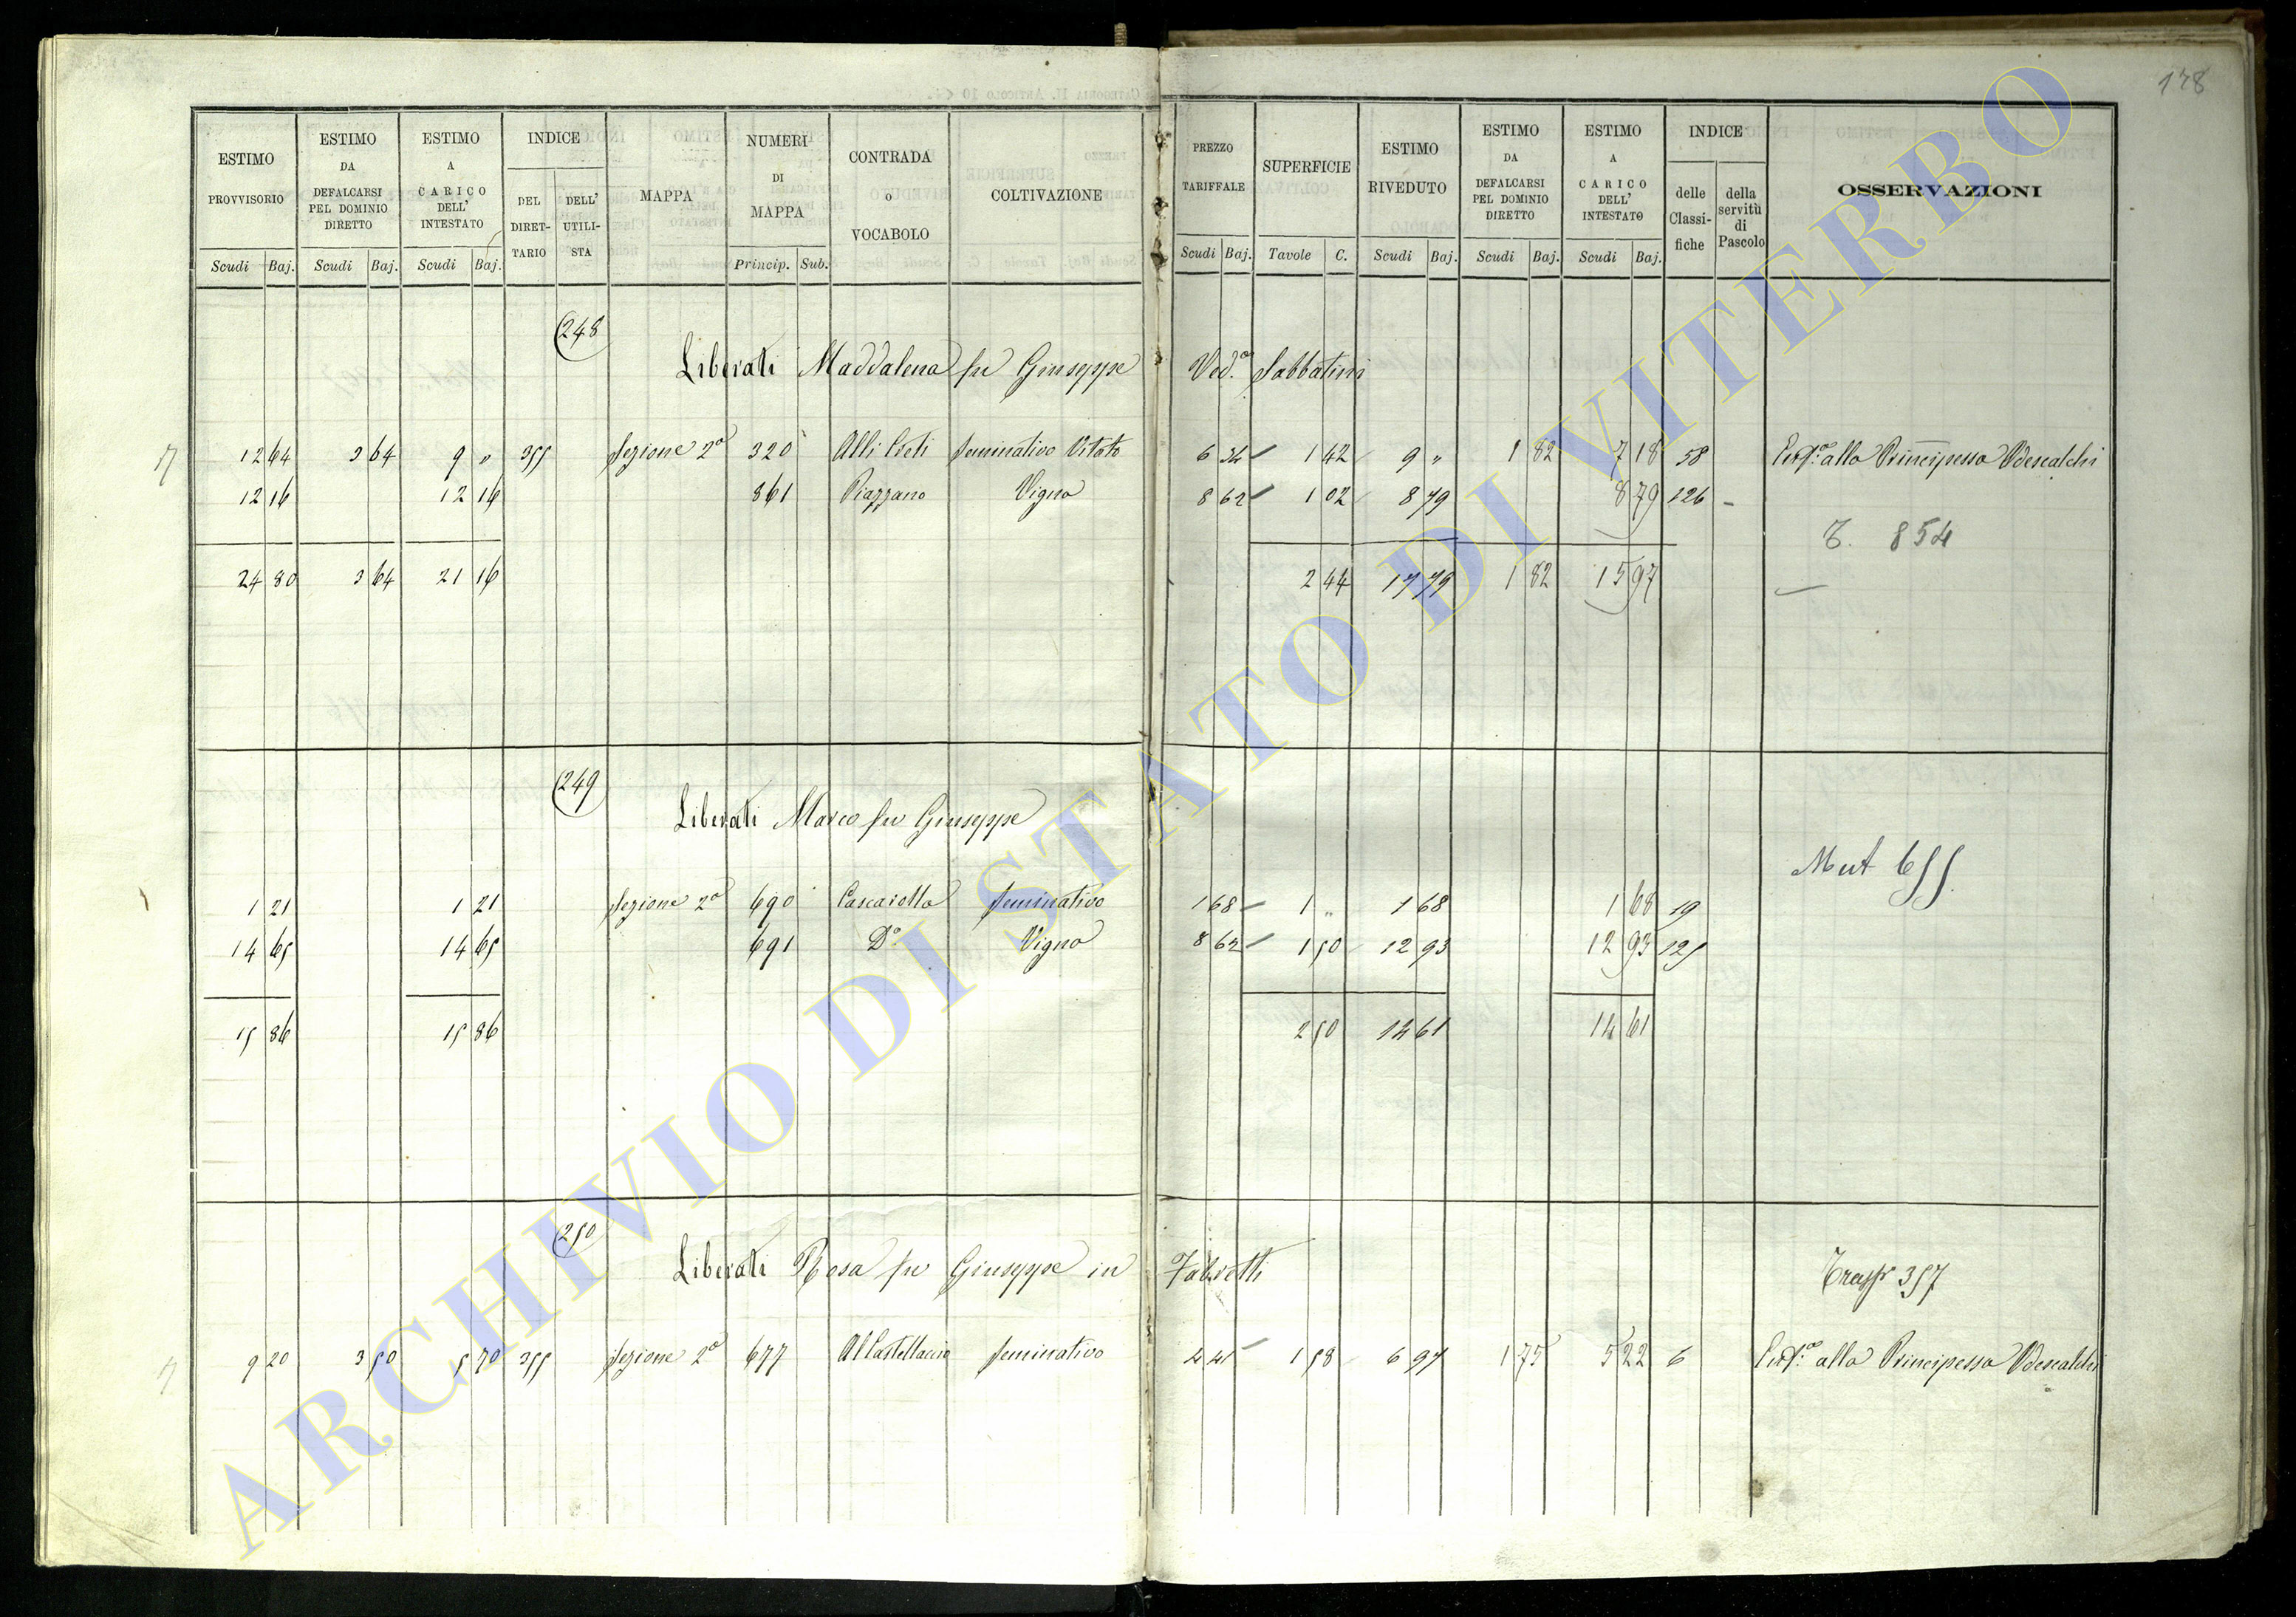 178
ESTIMO PROVVISORIO Scudi Baj.
ESTIMO DA DEFALCARSI PEL DOMINIO DIRETTO Scudi Baj.
ESTIMO A CARICO DELL' INTESTATO Scudi Baj.
INDICE DEL DIRETTARIO DELL' UTILISTA
MAPPA
NUMERI DI MAPPA Princip. Sub.
CONTRADA o VOCABOLO
COLTIVAZIONE
PREZZO TARIFFALE Scudi Baj.
SUPERFICIE Tavole C.
ESTIMO RIVEDUTO Scudi Baj.
ESTIMO DA DEFALCARSI PEL DOMINIO DIRETTO Scudi Baj.
ESTIMO A CARICO DELL' INTESTATO Scudi Baj.
INDICE delle Classifiche della servitù di Pascolo
OSSERVAZIONI
248
Liberati Maddalena fu Giuseppe Ved.a Sabbatini
12 64 3 64 9 " 355 Sezione 2a 320 Seminativo Vitato 6 34 1 42 9 " 1 82 7 18 58 alla Principessa Odescalchi
12 16 12 16 861 Piazzano Vigna 8 62 1 02 8 79 8 79 126
T. 854
24 80 3 64 21 16 2 44 17 79 1 82 15 97
249
Liberati Marco fu Giuseppe
Mut 655
1 21 1 21 Sezione 2a 690 Cascarella Seminativo 1 68 1 " 1 68 1 68 19
14 65 14 65 691 Do Vigna 8 62 1 50 12 93 12 93 125
15 86 15 86 2 50 14 61 14 61
250
Liberati Rosa fu Giuseppe in Fabretti
Trasp 357
9 20 3 50 5 70 355 Sezione 2a 677 Al Castellaccio Seminativo 4 41 1 58 6 97 1 75 5 22 6 alla Principessa Odescalchi
ARCHIVIO DI STATO DI VITERBO